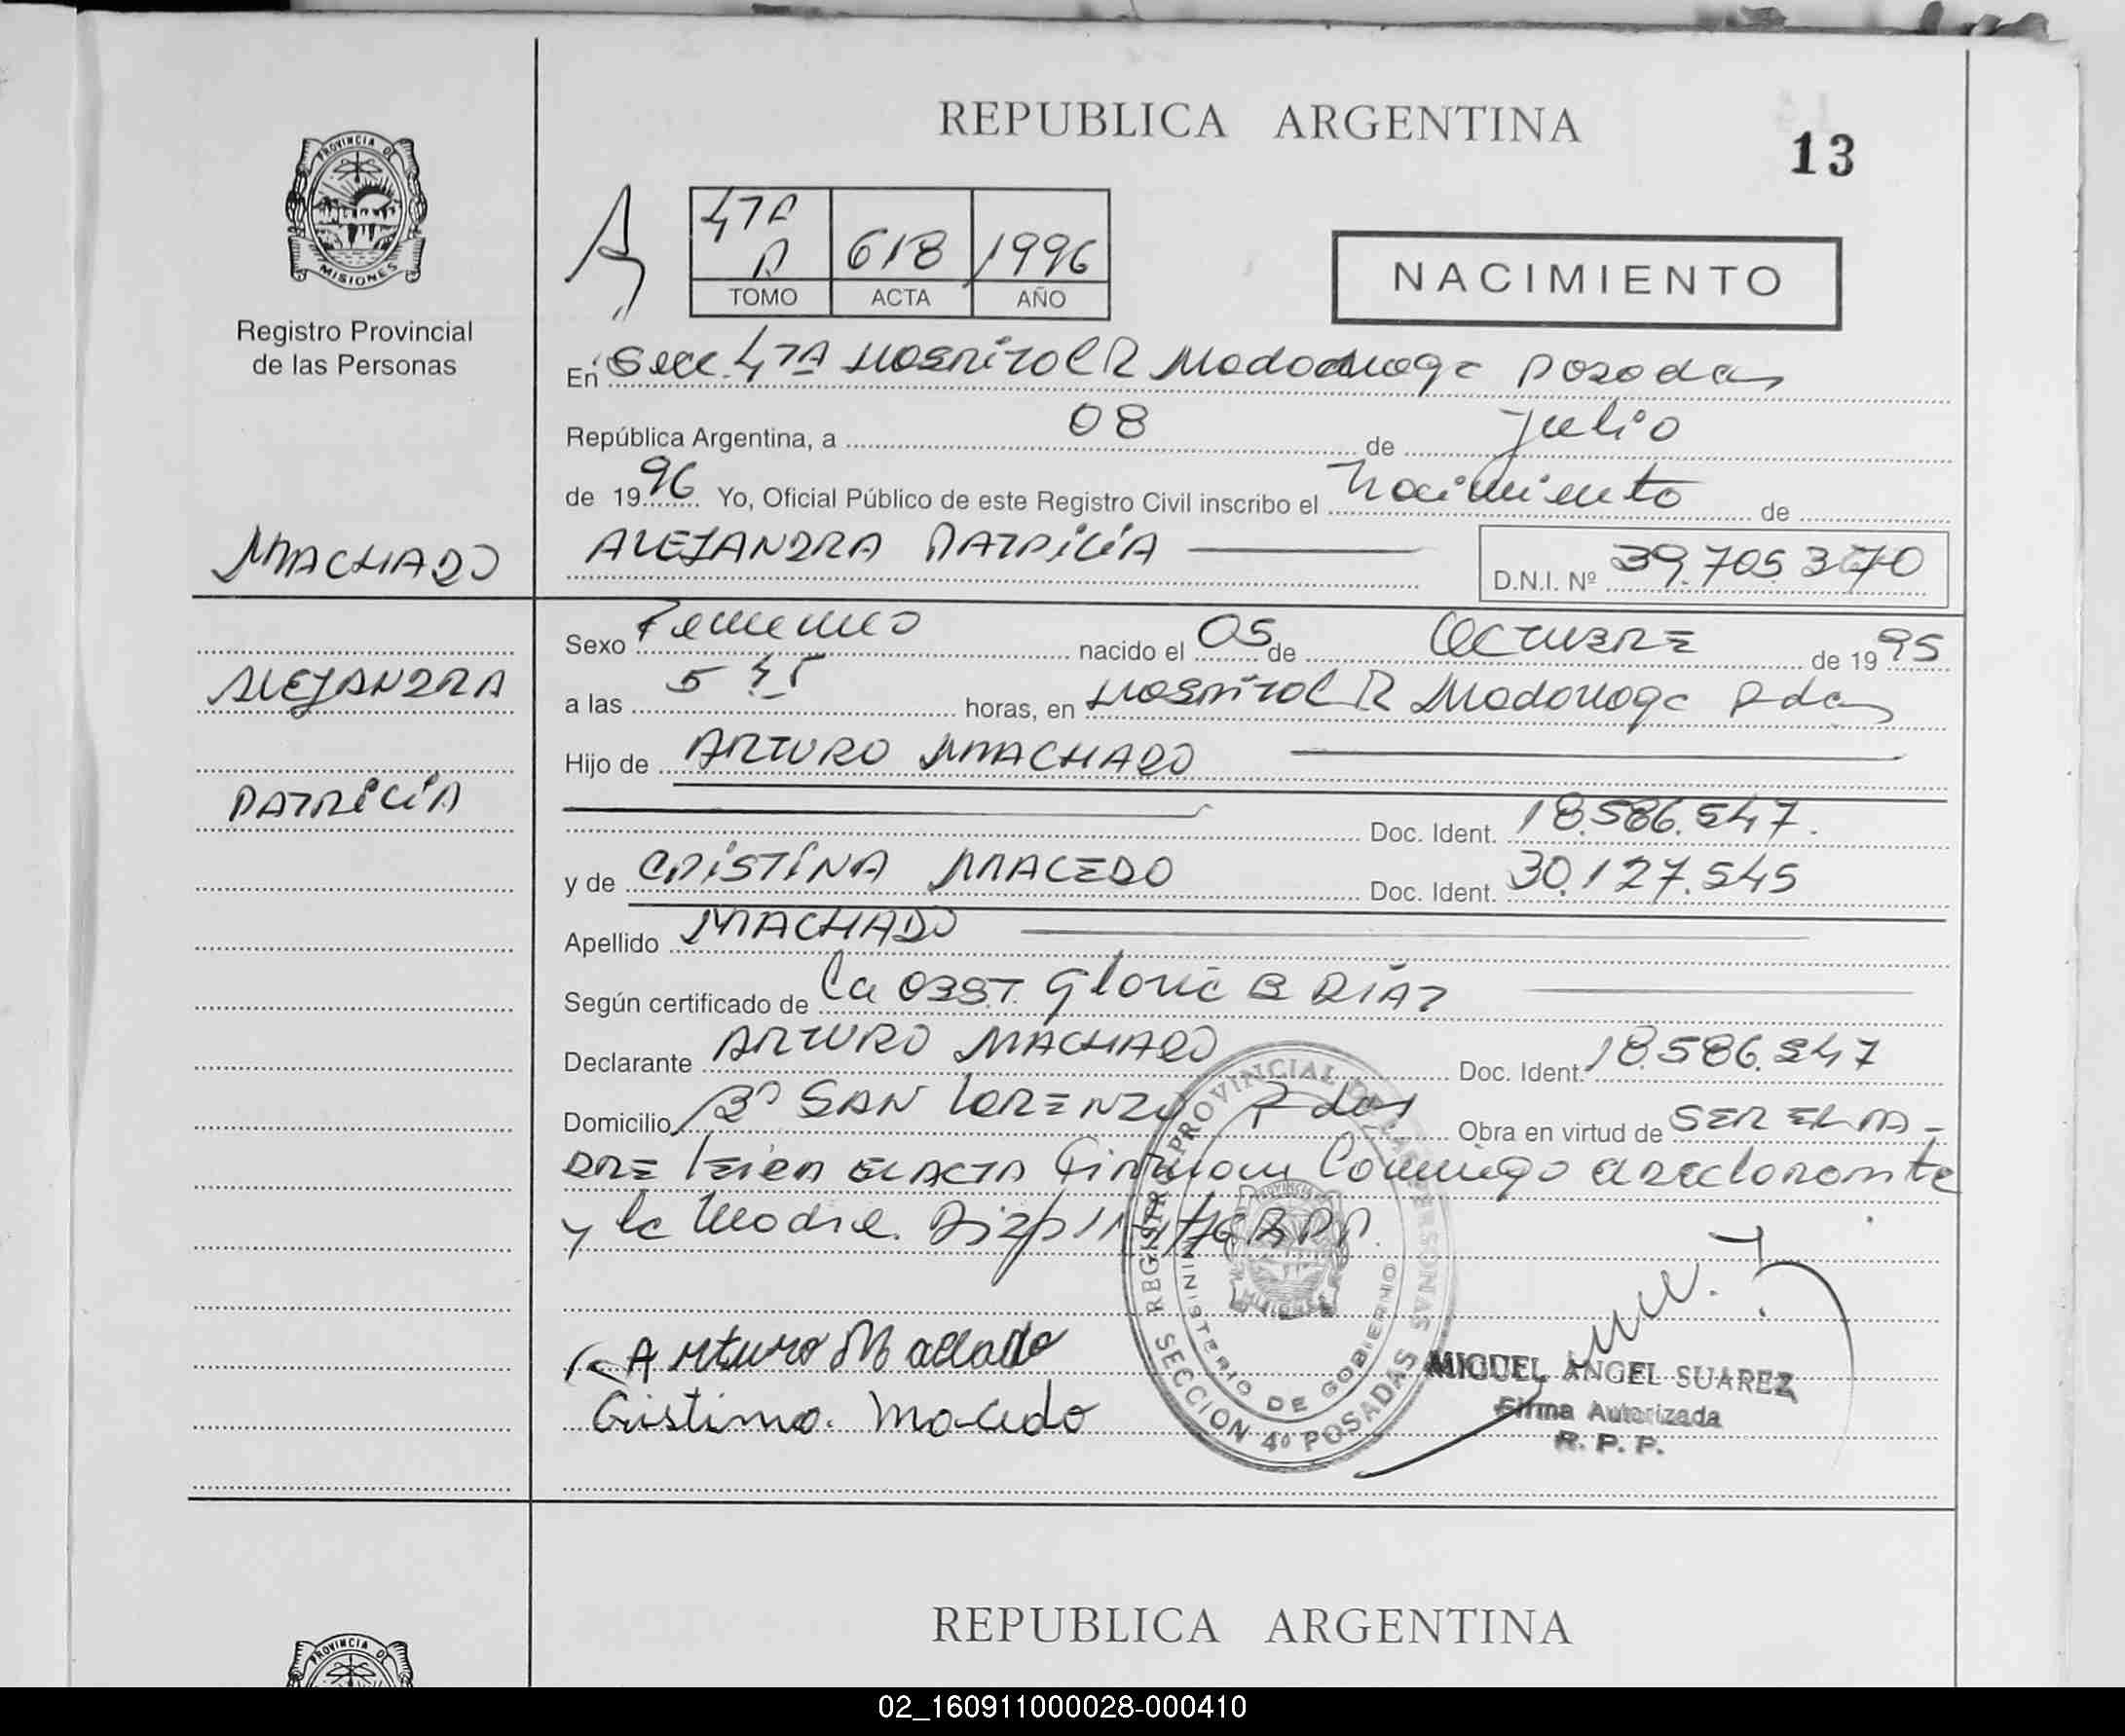 REPUBLICA ARGENTINA
13
PROVINCIA DE
MISIONES
Registro Provincial
de las Personas
4TA
618
1996
TOMO ACTA AÑO
NACIMIENTO
En Secc. 4TA Hospital R Madariaga Posadas
República Argentina, a 08 de Julio
de 1996 Yo, Oficial Público de este Registro Civil inscribo el Nacimiento de
MACHADO
ALEJANDRA PATRICIA
D.N.I. Nº 39.705.370
Sexo Femenino nacido el 05 de OCTUBRE de 1995
ALEJANDRA
a las 5 45 horas, en Hospital R Madariaga Pdas
Hijo de ARTURO MACHADO
PATRICIA
Doc. Ident. 18.586.547.
y de CRISTINA MACEDO Doc. Ident. 30.127.545
Apellido MACHADO
Según certificado de La OBST. Gloria B DIAZ
Declarante ARTURO MACHADO Doc. Ident. 18.586.547
Domicilio Bº SAN LORENZO Pdas Obra en virtud de SER EL PA-
DRE leida EL ACTA Firman Conmigo declarante
y la Madre.
Arturo Machado
Cristina. Macedo
REGISTRO PROVINCIAL DE LAS PERSONAS
MINISTERIO DE GOBIERNO
SECCION 4º POSADAS
MIGUEL ANGEL SUAREZ
Firma Autorizada
R. P. P.
REPUBLICA ARGENTINA
PROVINCIA DE
02_160911000028-000410